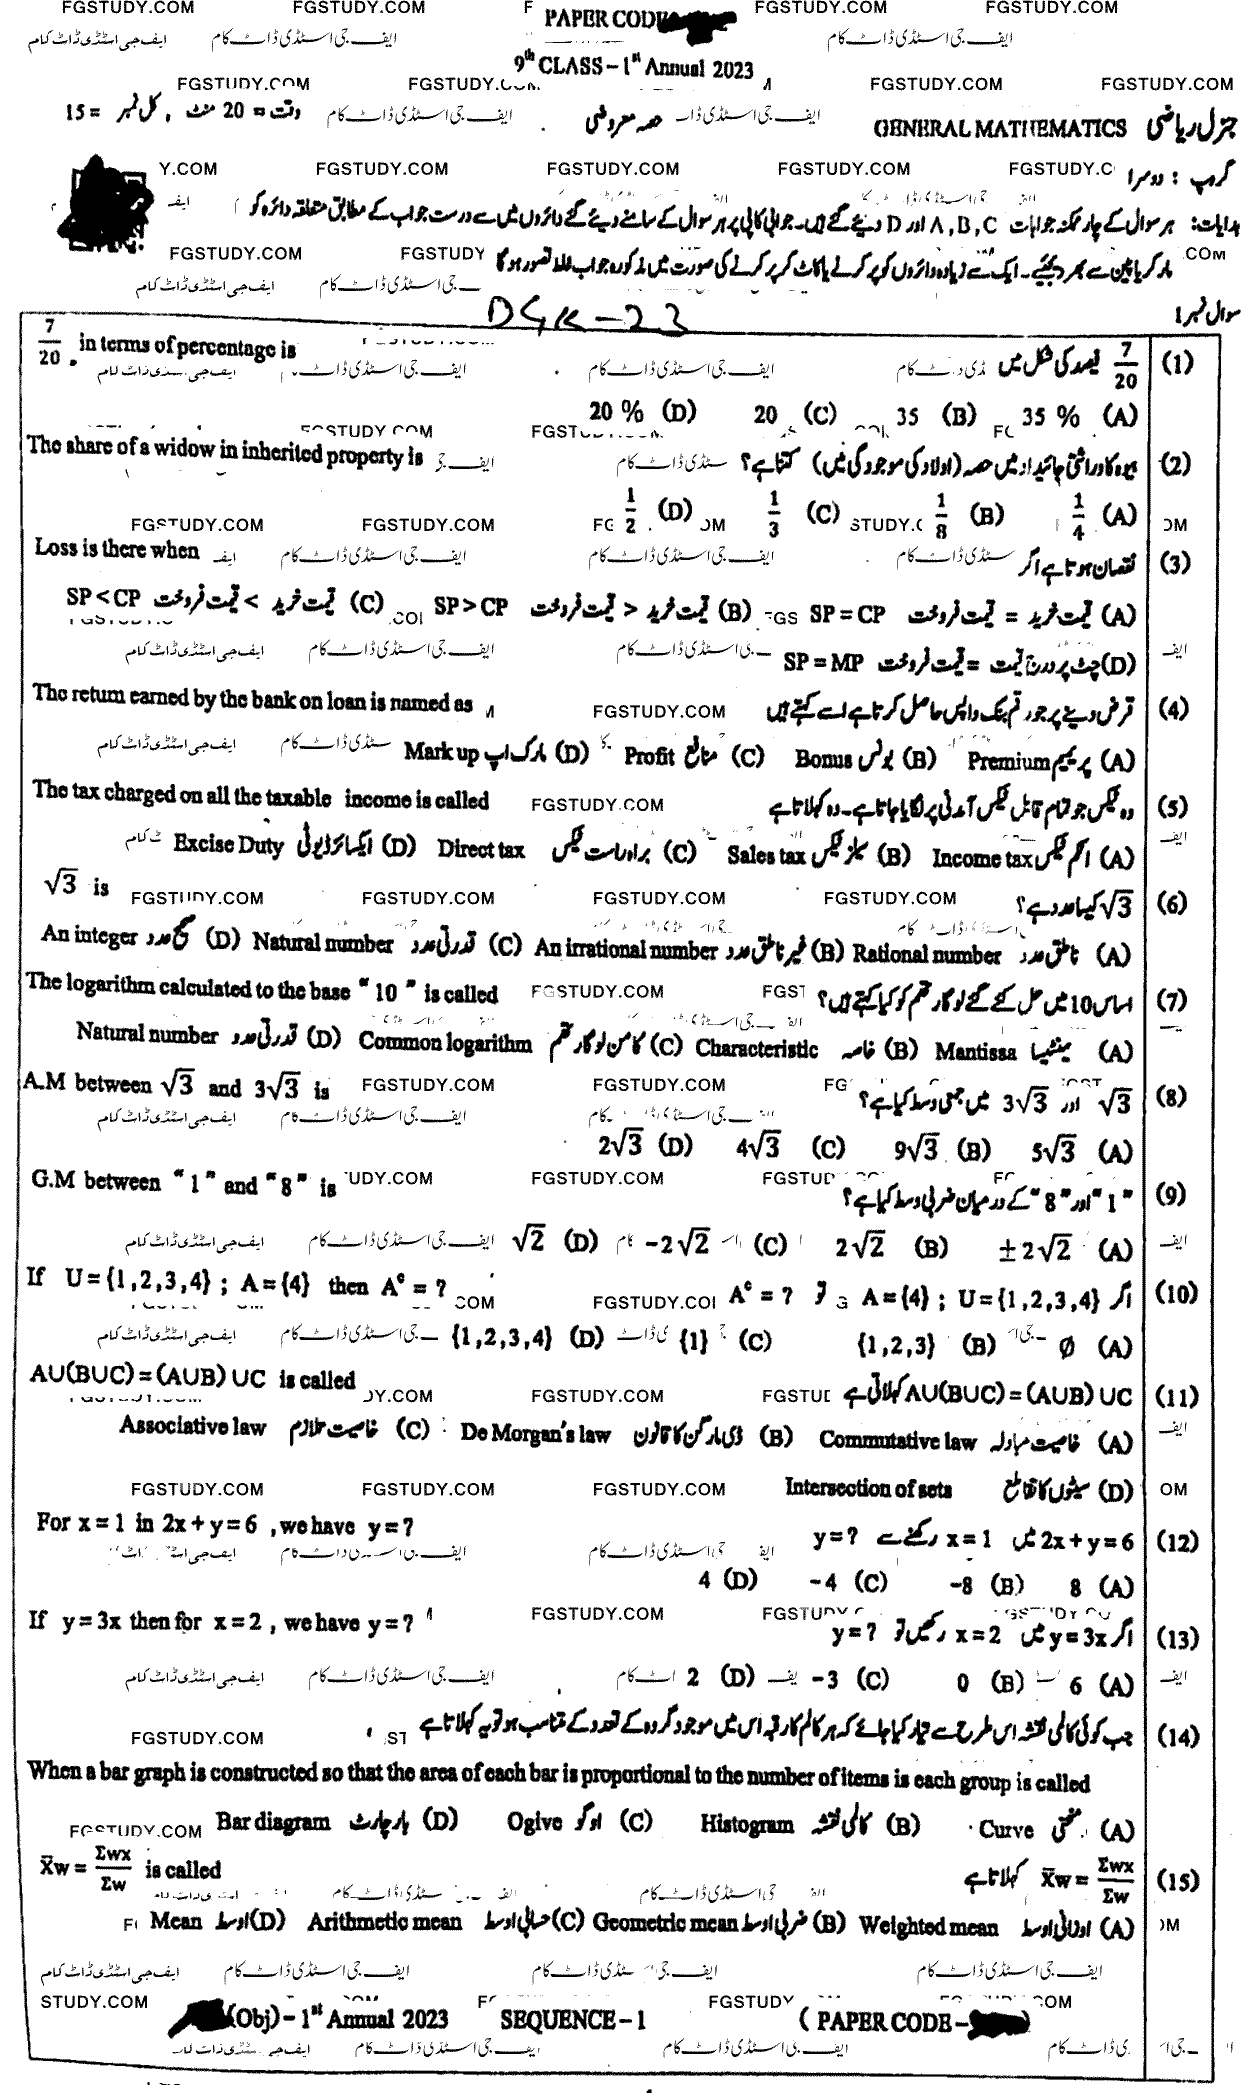 PAPER CODE
9th CLASS – 1st Annual 2023
GENERAL MATHEMATICS جنرل ریاضی
حصہ معروضی
وقت = 20 منٹ , کل نمبر = 15
گروپ : دوسرا
ہدایات: ہر سوال کے چار ممکنہ جوابات A,B,C اور D دیئے گئے ہیں۔ جوابی کاپی پر ہر سوال کے سامنے دیئے گئے دائروں میں سے درست جواب کے مطابق متعلقہ دائرہ کو
مارکر یا پین سے بھر دیجئیے۔ ایک سے زیادہ دائروں کو پر کرنے یا کاٹ کر پر کرنے کی صورت میں مذکورہ جواب غلط تصور ہوگا
سوال نمبر 1
DGK-23
(1) 7/20 فیصد کی شکل میں
7/20 in terms of percentage is
(A) 35 % (B) 35 (C) 20 (D) 20 %
(2) بیوہ کا وراثتی جائیداد میں حصہ (اولاد کی موجودگی میں) کتنا ہے؟
The share of a widow in inherited property is
(A) 1/4 (B) 1/8 (C) 1/3 (D) 1/2
(3) نقصان ہوتا ہے اگر
Loss is there when
(A) قیمت خرید = قیمت فروخت SP = CP (B) قیمت خرید < قیمت فروخت SP > CP (C) قیمت خرید > قیمت فروخت SP < CP
(D) چٹ پر درج قیمت = قیمت فروخت SP = MP
(4) قرض دینے پر جو رقم بنک واپس حاصل کرتا ہے اسے کہتے ہیں
The return earned by the bank on loan is named as
(A) پریمیم Premium (B) بونس Bonus (C) منافع Profit (D) مارک اپ Mark up
(5) وہ ٹیکس جو تمام قابل ٹیکس آمدنی پر لگایا جاتا ہے۔ وہ کہلاتا ہے
The tax charged on all the taxable income is called
(A) انکم ٹیکس Income tax (B) سیلز ٹیکس Sales tax (C) براہ راست ٹیکس Direct tax (D) ایکسائز ڈیوٹی Excise Duty
(6) √3 کیسا عدد ہے؟
√3 is
(A) ناطق عدد Rational number (B) غیر ناطق عدد An irrational number (C) قدرتی عدد Natural number (D) صحیح عدد An integer
(7) اساس 10 میں حل کئے گئے لوگارتھم کو کیا کہتے ہیں؟
The logarithm calculated to the base " 10 " is called
(A) مینٹیسا Mantissa (B) خاصہ Characteristic (C) کامن لوگارتھم Common logarithm (D) قدرتی عدد Natural number
(8) √3 اور 3√3 میں جمعی وسط کیا ہے؟
A.M between √3 and 3√3 is
(A) 5√3 (B) 9√3 (C) 4√3 (D) 2√3
(9) "1" اور "8" کے درمیان ضربی وسط کیا ہے؟
G.M between " 1 " and " 8 " is
(A) ±2√2 (B) 2√2 (C) -2√2 (D) √2
(10) اگر U = {1,2,3,4} ; A = {4} تو Aᶜ = ?
If U = {1,2,3,4} ; A = {4} then Aᶜ = ?
(A) ∅ (B) {1,2,3} (C) {1} (D) {1,2,3,4}
(11) AU(BUC) = (AUB) UC کہلاتی ہے
AU(BUC) = (AUB) UC is called
(A) خاصیت مبادلہ Commutative law (B) ڈی مارگن کا قانون De Morgan's law (C) خاصیت تلازم Associative law
(D) سیٹوں کا تقاطع Intersection of sets
(12) 2x + y = 6 میں x = 1 رکھنے سے y = ?
For x = 1 in 2x + y = 6 , we have y = ?
(A) 8 (B) -8 (C) -4 (D) 4
(13) اگر y = 3x میں x = 2 رکھیں تو y = ?
If y = 3x then for x = 2 , we have y = ?
(A) 6 (B) 0 (C) -3 (D) 2
(14) جب کوئی کالمی نقشہ اس طرح سے تیار کیا جائے کہ ہر کالم کا رقبہ اس میں موجود گروہ کے تعدد کے متناسب ہو تو یہ کہلاتا ہے
When a bar graph is constructed so that the area of each bar is proportional to the number of items is each group is called
(A) منحنی Curve (B) کالمی نقشہ Histogram (C) اوگو Ogive (D) بار چارٹ Bar diagram
(15) X̄w = Σwx/Σw کہلاتا ہے
X̄w = Σwx/Σw is called
(A) اوزانی اوسط Weighted mean (B) ضربی اوسط Geometric mean (C) حسابی اوسط Arithmetic mean (D) اوسط Mean
(Obj) – 1st Annual 2023 SEQUENCE – 1 ( PAPER CODE – )
FGSTUDY.COM
ایف جی اسٹڈی ڈاٹ کام